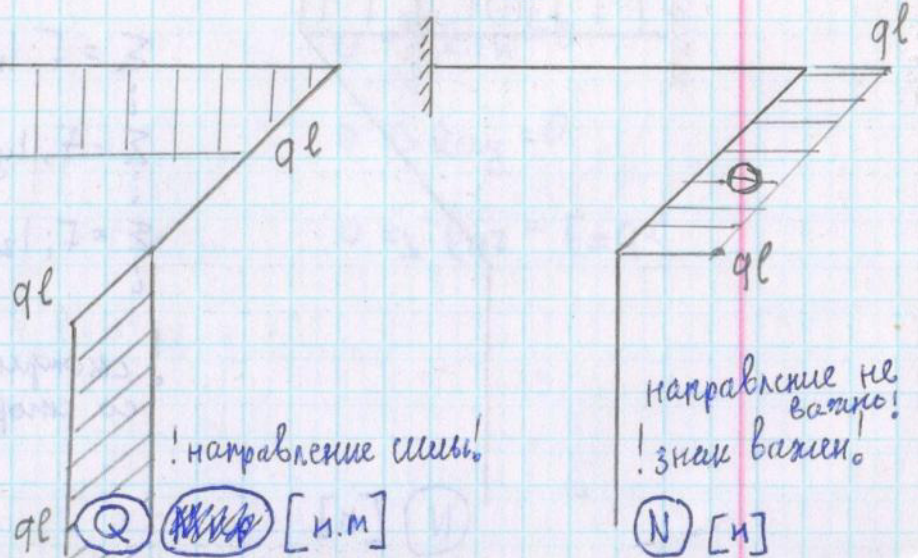 ql
ql
ql
ql
ql
ql
⊖
! направление силы!
Q [н.м]
направление не
важно!
! знак важен!
N [н]